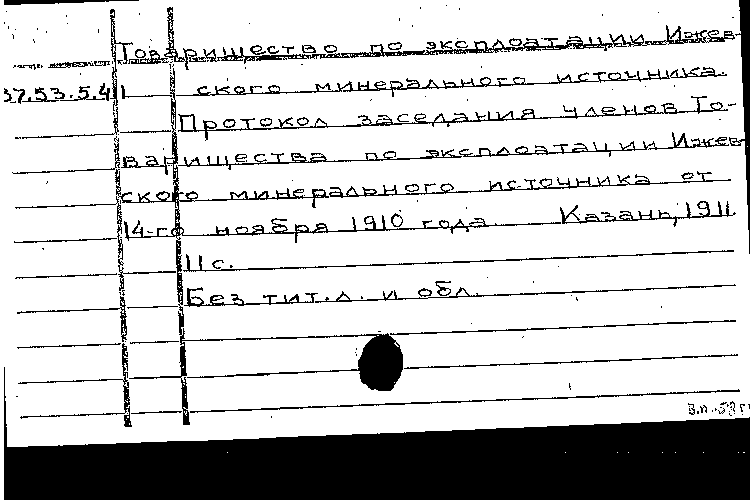 Товарищество по эксплоатации Ижев-
37.53.5.41 ского минерального источника.
Протокол заседания членов То-
варищества по эксплоатации Ижев-
ского минерального источника от
14-го ноября 1910 года. Казань, 1911
11 с.
Без тит.л. и обл.